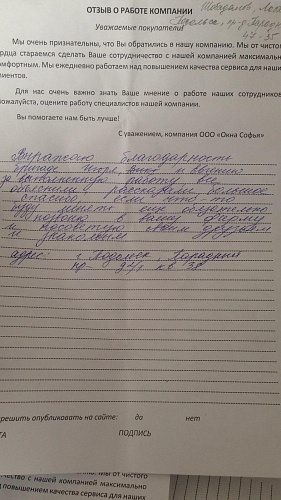 ОТЗЫВ О РАБОТЕ КОМПАНИИ
Уважаемые покупатели!
Мы очень признательны, что Вы обратились в нашу компанию. Мы от чистого
рдца стараемся сделать Ваше сотрудничество с нашей компанией максимально
омфортным. Мы ежедневно работаем над повышением качества сервиса для наши
иентов.
Для нас очень важно знать Ваше мнение о работе наших сотрудников
ожалуйста, оцените работу специалистов нашей компании.
Вы помогаете нам быть лучше!
С уважением, компания ООО «Окна Софья»
Выражаю благодарность
бригаде Игоря, и Евгению
за выполненную работу все
объяснили, рассказали большое
спасибо, если что-то
буду менять ещё обязательно
позвоню в вашу фирму
и посоветую своим друзьям
и знакомым
адрес: г. Подольск, Парадный
пр-
решить опубликовать на сайте: да нет
ТА ПОДПИСЬ
Мы от чистого
чество с нашей компанией максимально
д повышением качества сервиса для наших